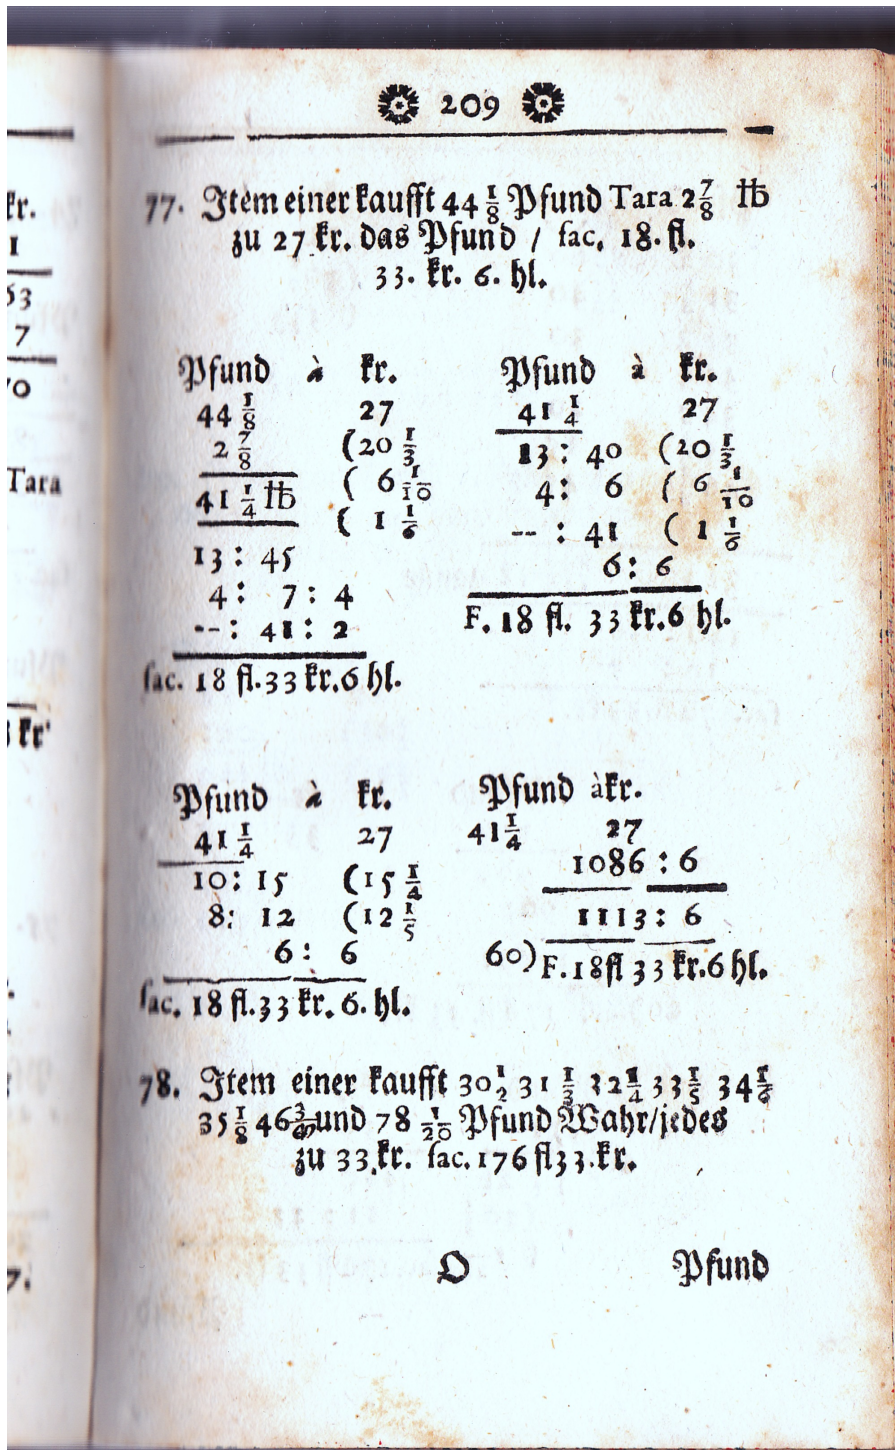 209
77. Item einer kaufft 44 1/8 Pfund Tara 2 7/8 ℔
zu 27 kr. das Pfund / fac. 18. fl.
33. kr. 6. hl.
Pfund à kr.
44 1/8 27
2 7/8 (20 1/3
41 1/4 ℔ ( 6 1/10
( 1 1/6
13 : 45
4 : 7 : 4
-- : 41 : 2
fac. 18 fl. 33 kr. 6 hl.
Pfund à kr.
41 1/4 27
13 : 40 (20 1/3
4 : 6 ( 6 1/10
-- : 41 ( 1 1/6
6 : 6
F. 18 fl. 33 kr. 6 hl.
Pfund à kr.
41 1/4 27
10 : 15 (15 1/4
8 : 12 (12 1/5
6 : 6
fac. 18 fl. 33 kr. 6. hl.
Pfund à kr.
41 1/4 27
1086 : 6
1113 : 6
60) F. 18 fl 33 kr. 6 hl.
78. Item einer kaufft 30 1/2 31 1/3 32 1/4 33 1/5 34 1/6
35 1/8 46 3/40 und 78 1/20 Pfund Wahr / jedes
zu 33. kr. fac. 176 fl 33. kr.
O Pfund
kr.
1
63
7
70
Tara
kr
7.